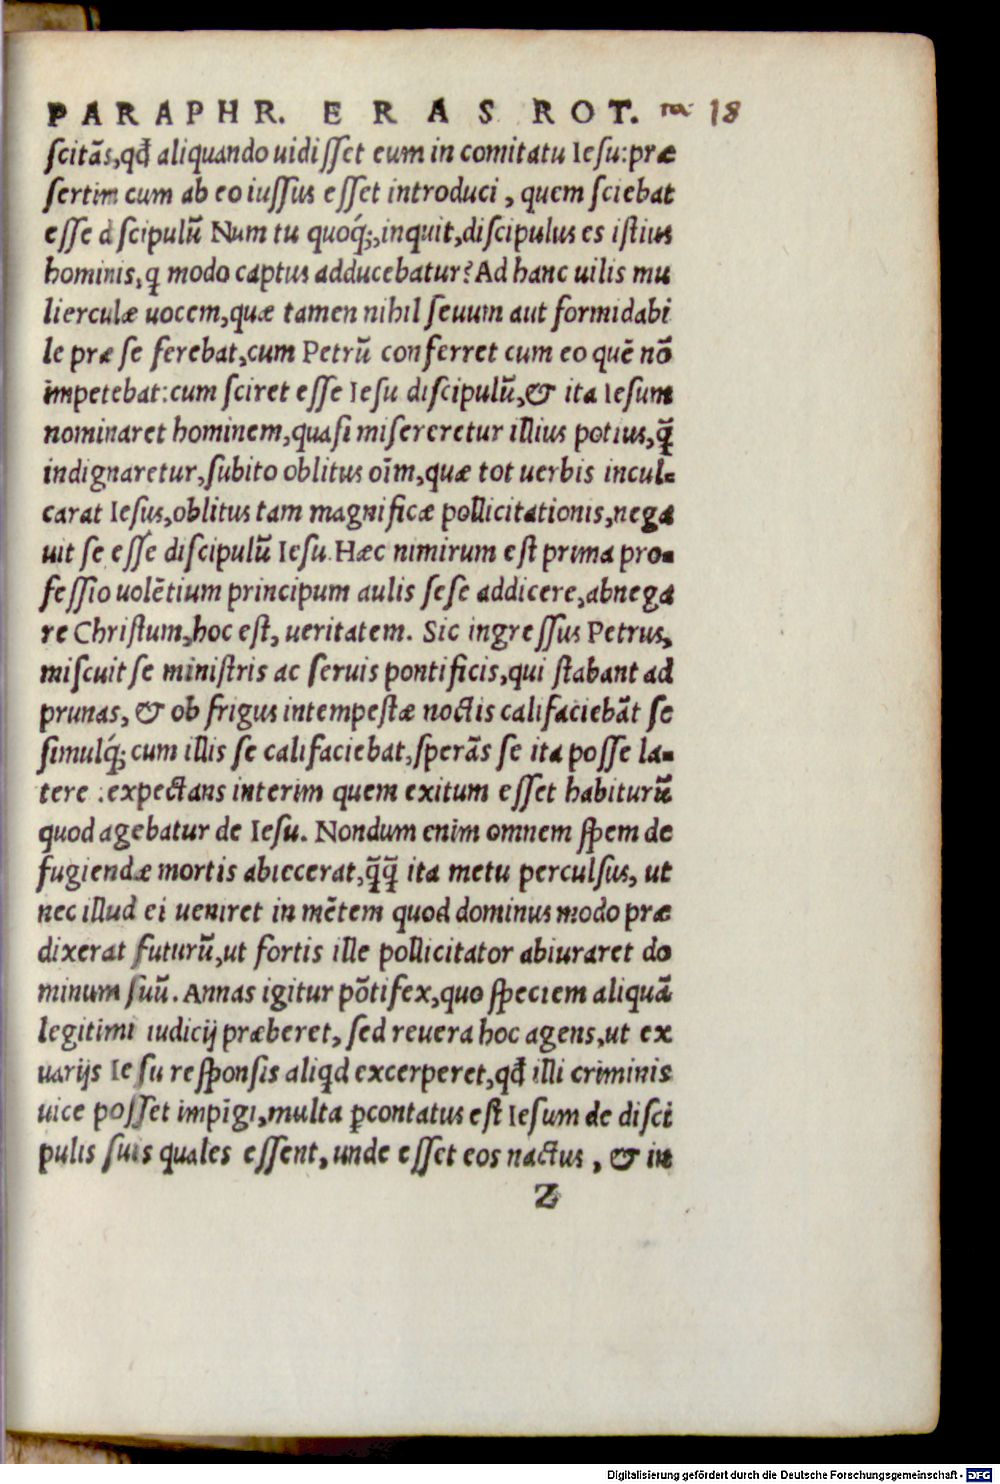 PARAPHR. ERAS ROT. 18
scitãs,qđ aliquando uidisset eum in comitatu Iesu:præ
sertim cum ab eo iussus esset introduci, quem sciebat
esse d scipulũ Num tu quoq́;,inquit,discipulus es istius
hominis,q modo captus adducebatur? Ad hanc uilis mu
lierculæ uocem,quæ tamen nihil seuum aut formidabi
le præ se ferebat,cum Petrũ conferret cum eo quẽ nõ
impetebat:cum sciret esse Iesu discipulũ,& ita Iesum
nominaret hominem,quasi misereretur illius potius,q̃
indignaretur,subito oblitus oĩm,quæ tot uerbis incul-
carat Iesus,oblitus tam magnificæ pollicitationis,nega
uit se esse discipulũ Iesu.Hæc nimirum est prima pro-
fessio uolẽtium principum aulis sese addicere,abnega
re Christum,hoc est, ueritatem. Sic ingressus Petrus,
miscuit se ministris ac seruis pontificis,qui stabant ad
prunas, & ob frigus intempestæ noctis califaciebãt se
simulq́; cum illis se califaciebat,sperãs se ita posse la-
tere :expectans interim quem exitum esset habiturũ
quod agebatur de Iesu. Nondum enim omnem spem de
fugiendæ mortis abiecerat,q̃q̃ ita metu perculsus, ut
nec illud ei ueniret in mẽtem quod dominus modo præ
dixerat futurũ,ut fortis ille pollicitator abiuraret do
minum suũ. Annas igitur põtifex,quo speciem aliquã
legitimi iudicij præberet, sed reuera hoc agens,ut ex
uarijs Iesu responsis aliqd excerperet,qđ illi criminis
uice posset impĩgi,multa ꝑcontatus est Iesum de disci
pulis suis quales essent, unde esset eos nactus, & in
Z
Digitalisierung gefördert durch die Deutsche Forschungsgemeinschaft - DFG